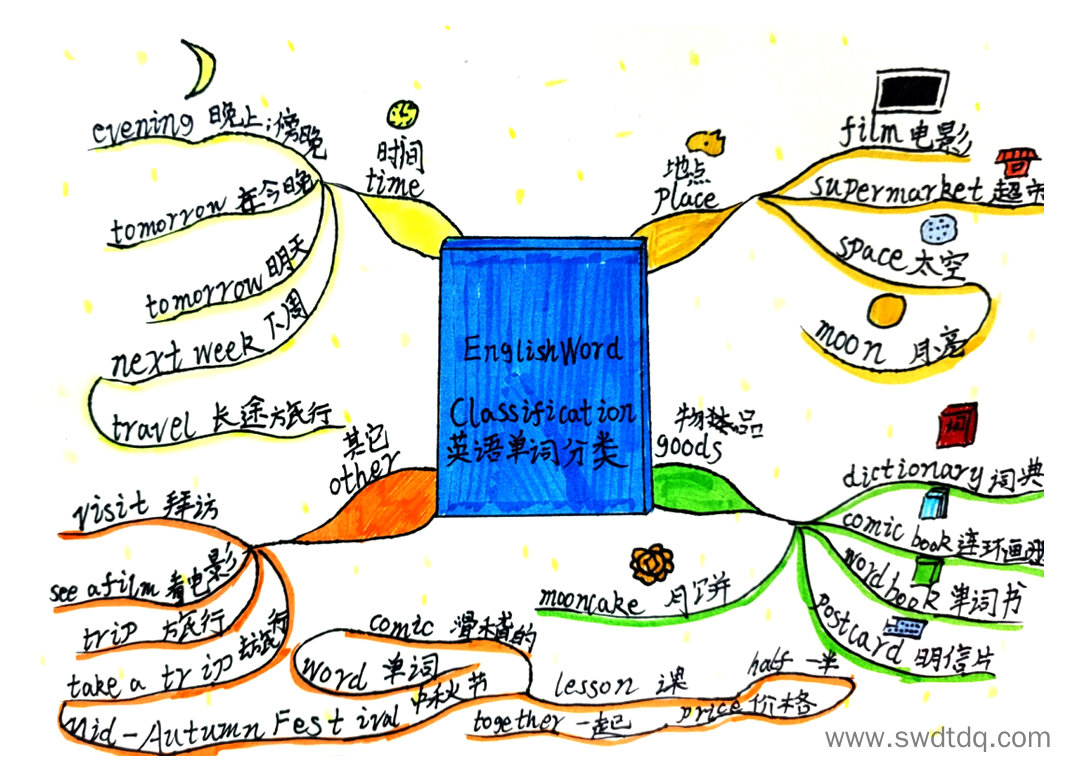 English Word
Classification
英语单词分类
时间
time
evening 晚上;傍晚
tomorrow 在今晚
tomorrow 明天
next week 下周
travel 长途旅行
地点
place
film 电影
supermarket 超市
space 太空
moon 月亮
goods
dictionary 词典
comic book 连环画
word book 单词书
postcard 明信片
mooncake 月饼
其它
other
visit 拜访
see a film 看电影
trip 旅行
take a trip 去旅行
Mid-Autumn Festival 中秋节
word 单词
comic 滑稽的
lesson 课
half 一半
price 价格
together 一起
www.swdtdq.com